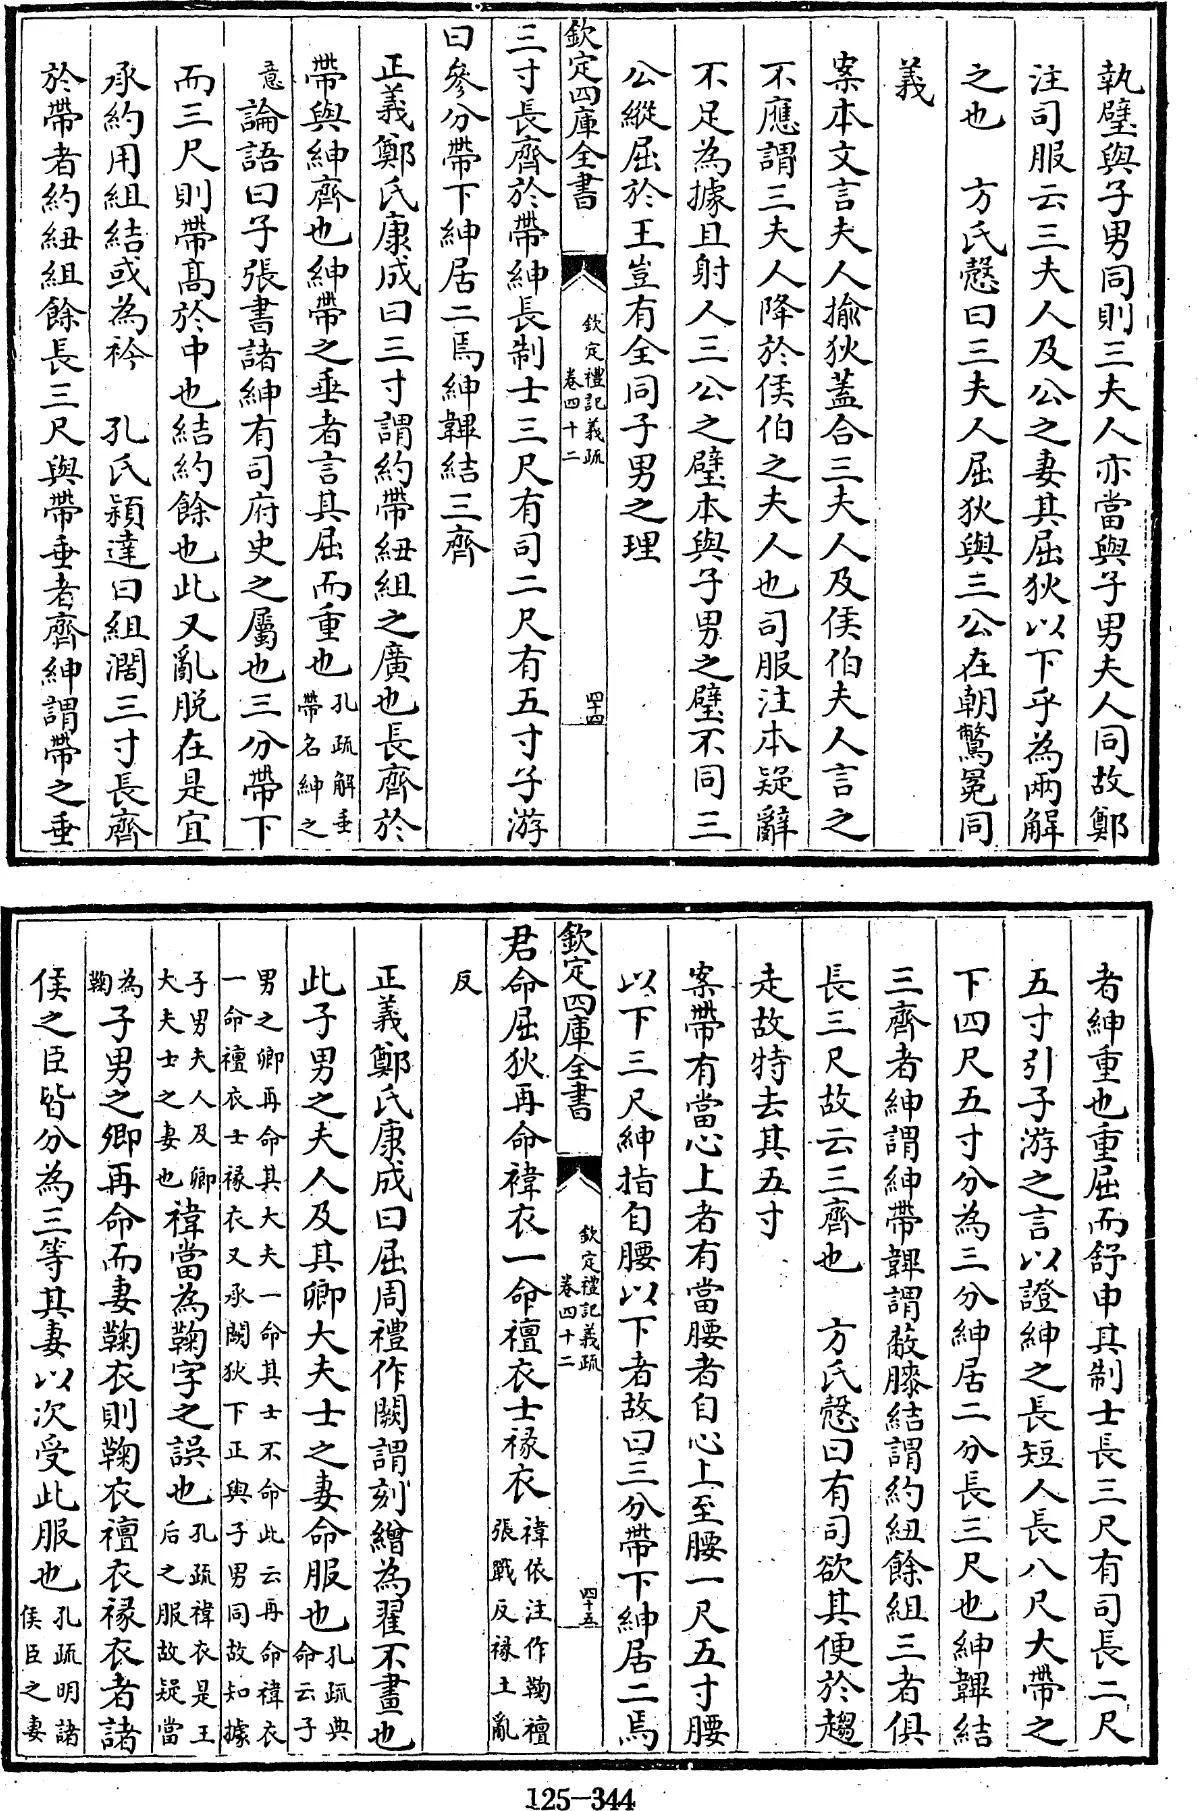 執璧與子男同則三夫人亦當與子男夫人同故鄭
注司服云三夫人及公之妻其屈狄以下乎為兩解
之也　方氏慤曰三夫人屈狄與三公在朝鷩冕同
義
案本文言夫人揄狄蓋合三夫人及侯伯夫人言之
不應謂三夫人降於侯伯之夫人也司服注本疑辭
不足為據且射人三公之璧本與子男之璧不同三
公縱屈於王豈有全同子男之理
欽定四庫全書
欽定禮記義疏
卷四十二
四十四
三寸長齊於帶紳長制士三尺有司二尺有五寸子游
曰參分帶下紳居二焉紳韠結三齊
正義鄭氏康成曰三寸謂約帶紐組之廣也長齊於
帶與紳齊也紳帶之垂者言其屈而重也孔疏解垂帶名紳之
意論語曰子張書諸紳有司府史之屬也三分帶下
而三尺則帶高於中也結約餘也此又亂脱在是宜
承約用組結或為衿　孔氏穎達曰組濶三寸長齊
於帶者約紐組餘長三尺與帶垂者齊紳謂帶之垂
者紳重也重屈而舒申其制士長三尺有司長二尺
五寸引子游之言以證紳之長短人長八尺大帶之
下四尺五寸分為三分紳居二分長三尺也紳韠結
三齊者紳謂紳帶韠謂蔽膝結謂約紐餘組三者俱
長三尺故云三齊也　方氏慤曰有司欲其便於趨
走故特去其五寸
案帶有當心上者有當腰者自心上至腰一尺五寸腰
以下三尺紳指自腰以下者故曰三分帶下紳居二焉
欽定四庫全書
欽定禮記義疏
卷四十二
四十五
君命屈狄再命褘衣一命襢衣士褖衣褘依注作鞠襢張戰反褖土亂
反
正義鄭氏康成曰屈周禮作闕謂刻繒為翟不畫也
此子男之夫人及其卿大夫士之妻命服也孔疏典命云子
男之卿再命其大夫一命其士不命此云再命褘衣一命襢衣士褖衣又承闕狄下正與子男同故知據
子男夫人及卿大夫士之妻也褘當為鞠字之誤也孔疏褘衣是王后之服故疑當
為鞠子男之卿再命而妻鞠衣則鞠衣襢衣褖衣者諸
侯之臣皆分為三等其妻以次受此服也孔疏明諸侯臣之妻
125-344